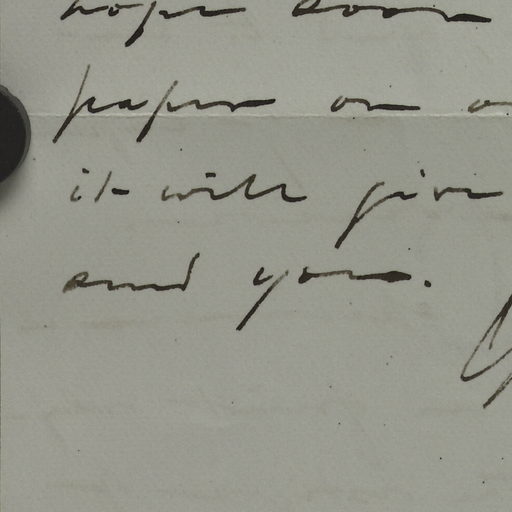 hope soon
paper on
it will give
send you.